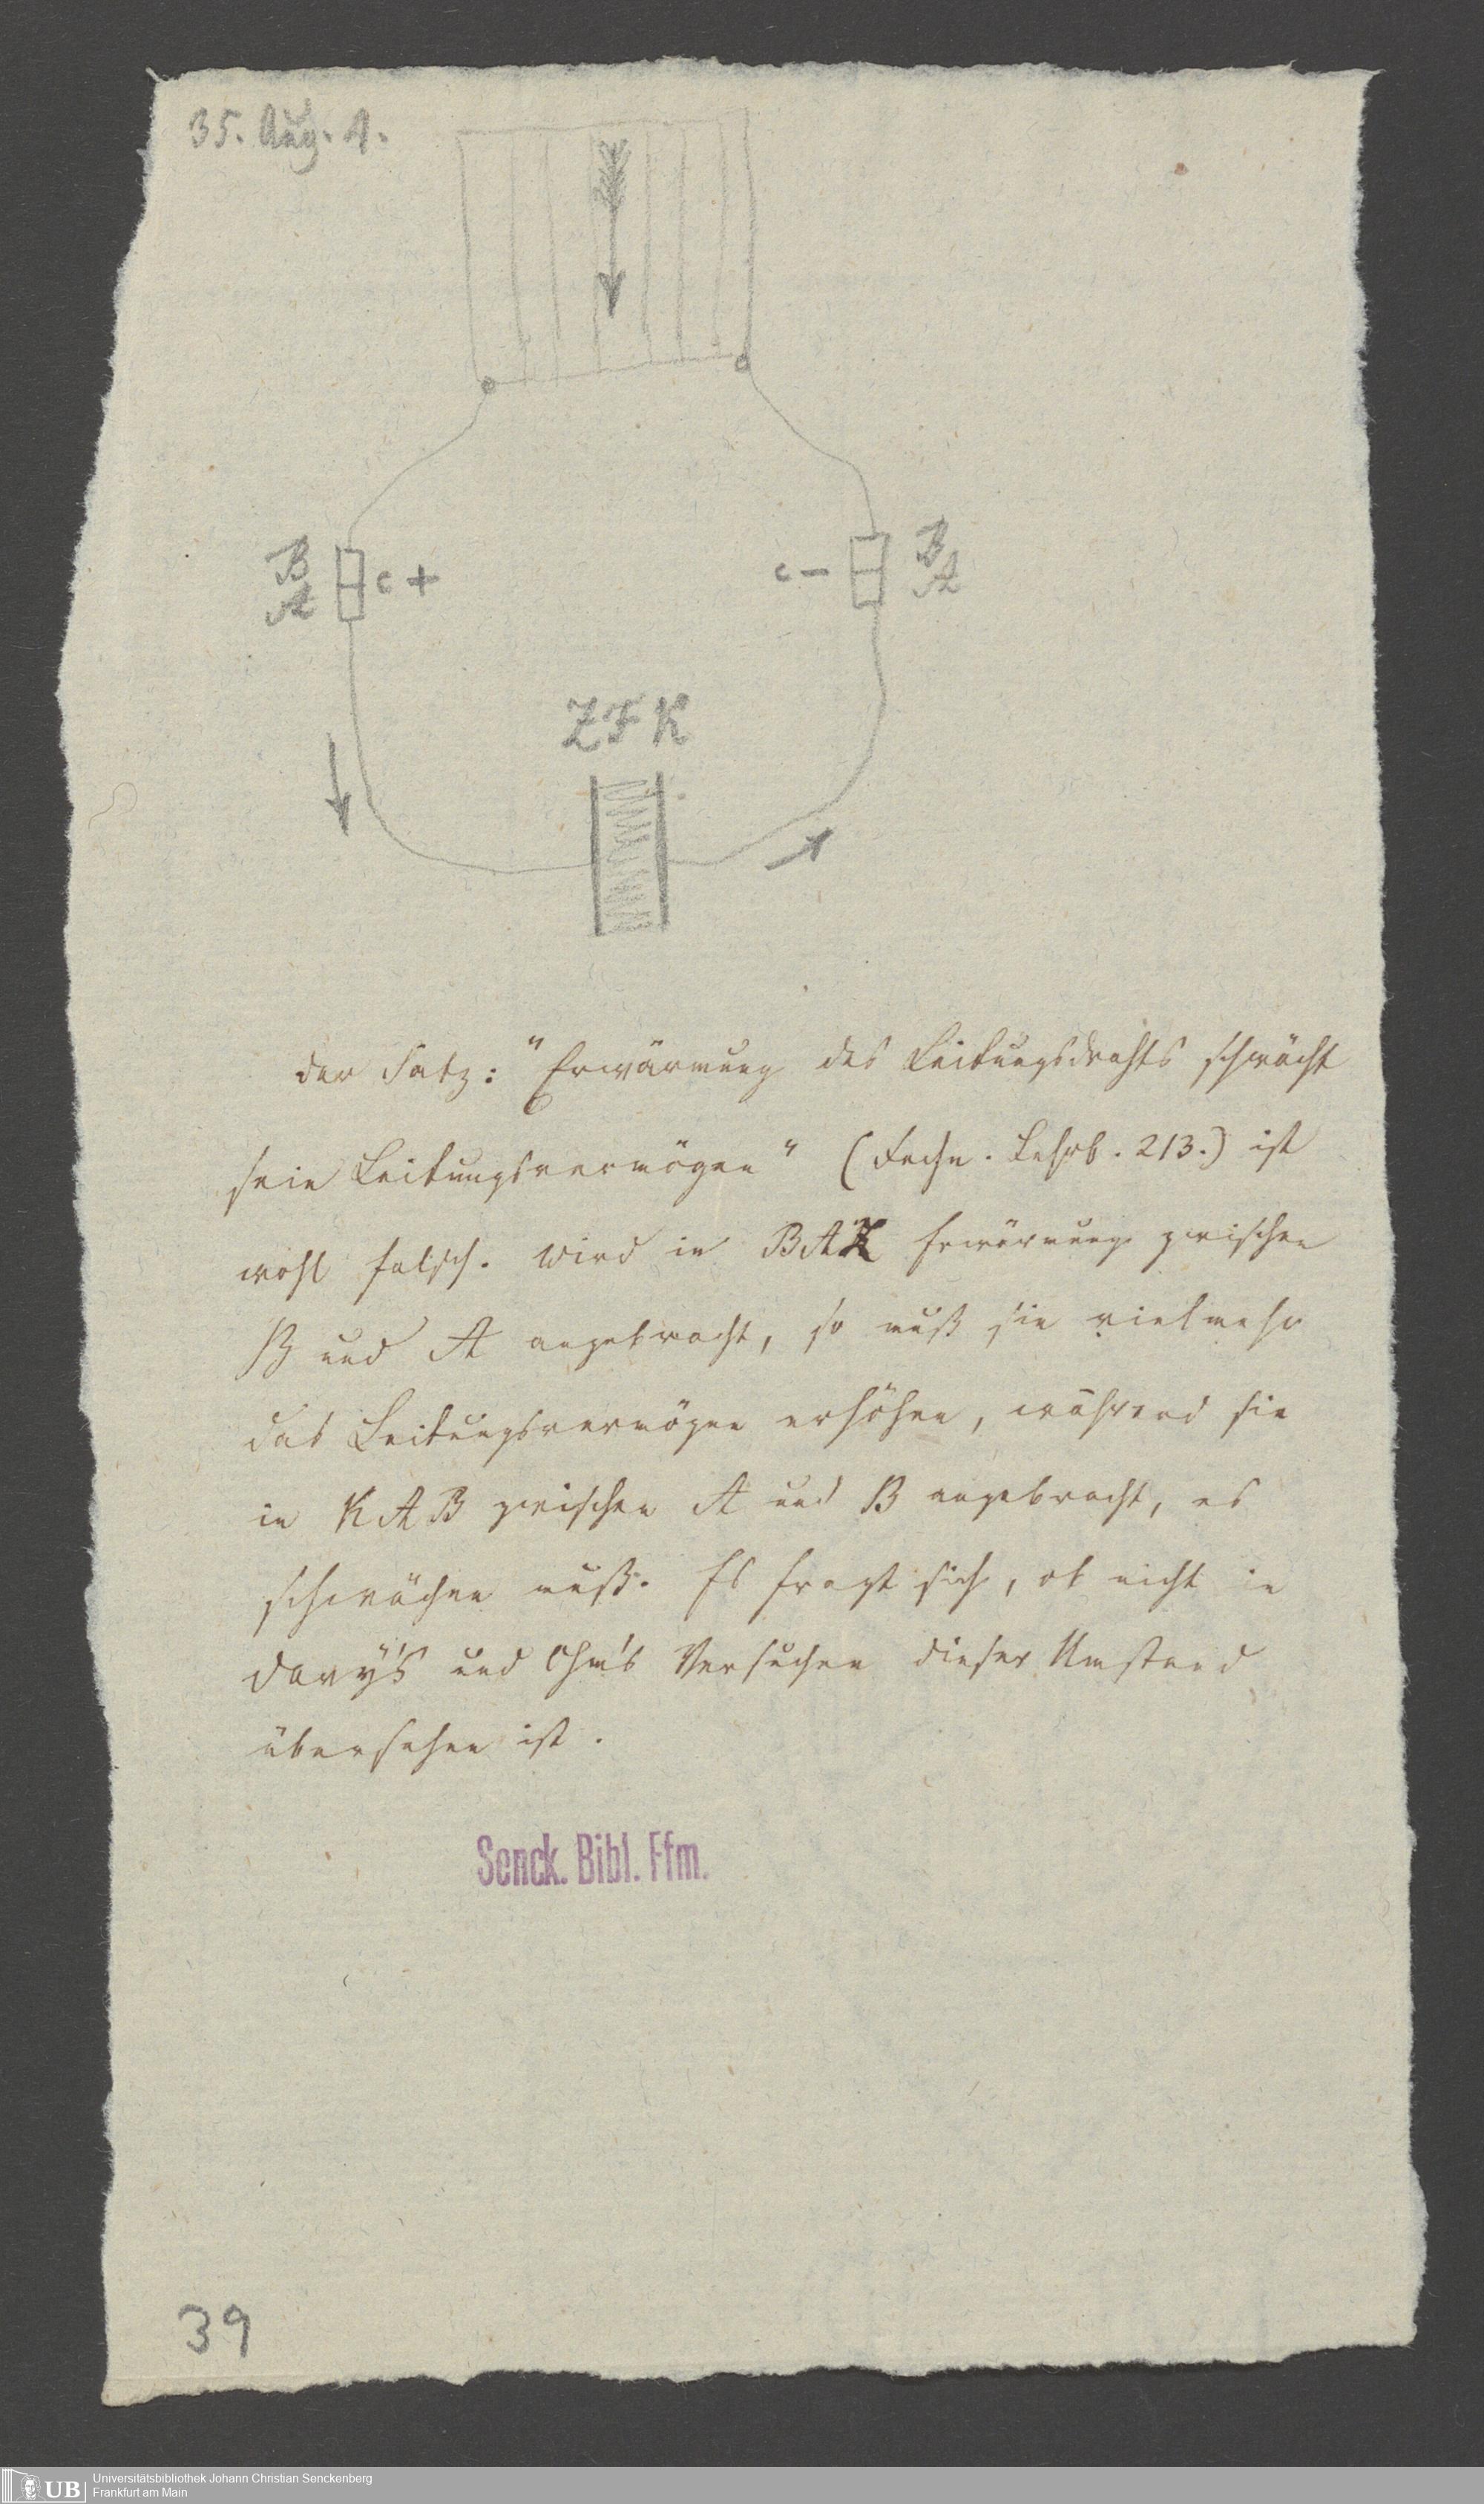 35. Aug. 1.
B
A
c +
c –
B
A
Z F K
der Satz: "Erwärmung des Leitungsdrahts schwächt
sein Leitungsvermögen" (Fechn. Lehrb. 213.) ist
wohl falsch. Wird in BAZ Erwärmung zwischen
B und A angebracht, so muß sie vielmehr
das Leitungsvermögen erhöhen, während sie
in KAB zwischen A und B angebracht, es
schwächen muß. Es fragt sich, ob nicht in
Davy's und Ohm's Versuchen dieser Umstand
übersehen ist.
Senck. Bibl. Ffm.
39
UB
Universitätsbibliothek Johann Christian Senckenberg
Frankfurt am Main